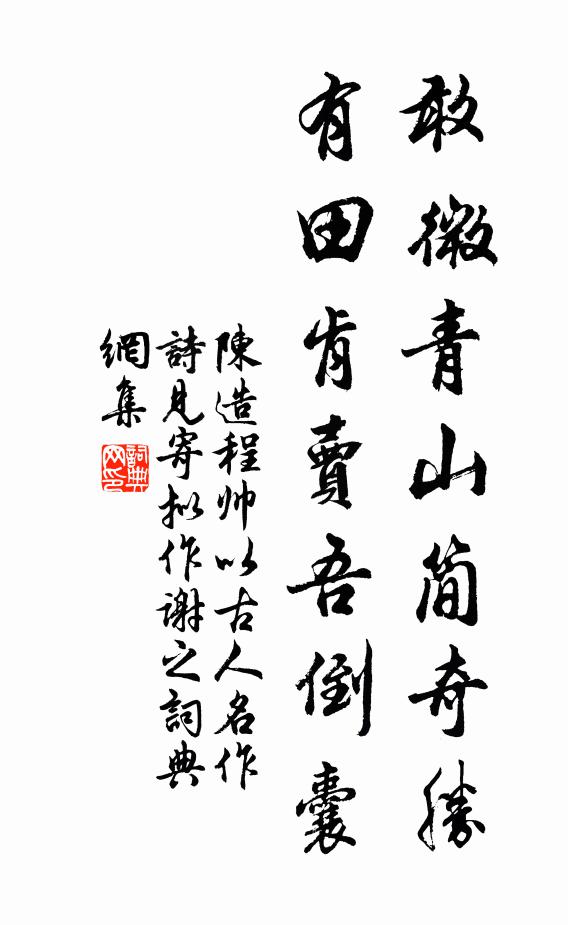 敢微青山簡奇勝
有田肯賣吾倒囊
陳造程帅以古人名作
詩見寄拟作谢之詞典
網集
詞典
网印